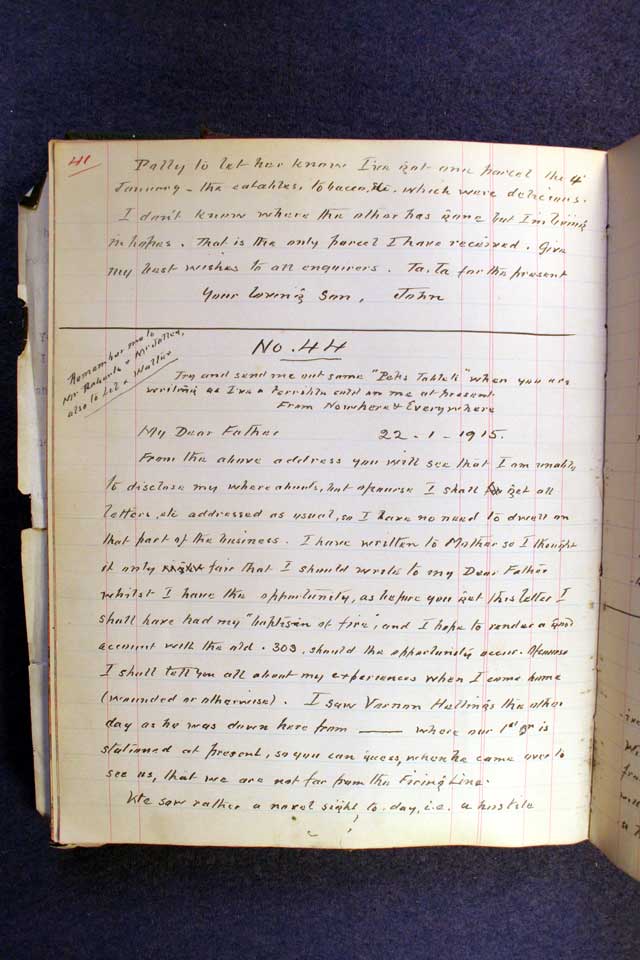 41
Polly to let her know I've got one parcel the 4th
January - the eatables, tobacco, etc. which were delicious.
I don't know where the other has gone but I'm living
in hopes. That is the only parcel I have received. Give
my best wishes to all enquirers. Ta. Ta for the present
Your loving Son, John
Remember me to
Mr Roberts & Mr
also to Lil & Wallie
No. 44
Try and send me out some "Tablets" when you are
writing as I've a terrible cold on me at present.
From Nowhere & Everywhere
My Dear Father 22-1-1915.
From the above address you will see that I am unable
to disclose my whereabouts, but ofcourse I shall get all
letters, etc addressed as usual, so I have no need to dwell on
that part of the business. I have written to Mother so I thought
it only fair that I should write to my Dear Father
whilst I have the opportunity, as before you get this letter I
shall have had my "baptism of fire", and I hope to render a good
account with the old .303, should the opportunity occur. Ofcourse
I shall tell you all about my experiences when I come home
(wounded or otherwise). I saw Vernon Hellings the other
day as he was down here from —— where our 1st is
stationed at present, so you can guess, when he came over to
see us, that we are not far from the Firing Line.
We saw rather a novel sight to-day, i.e. a hostile